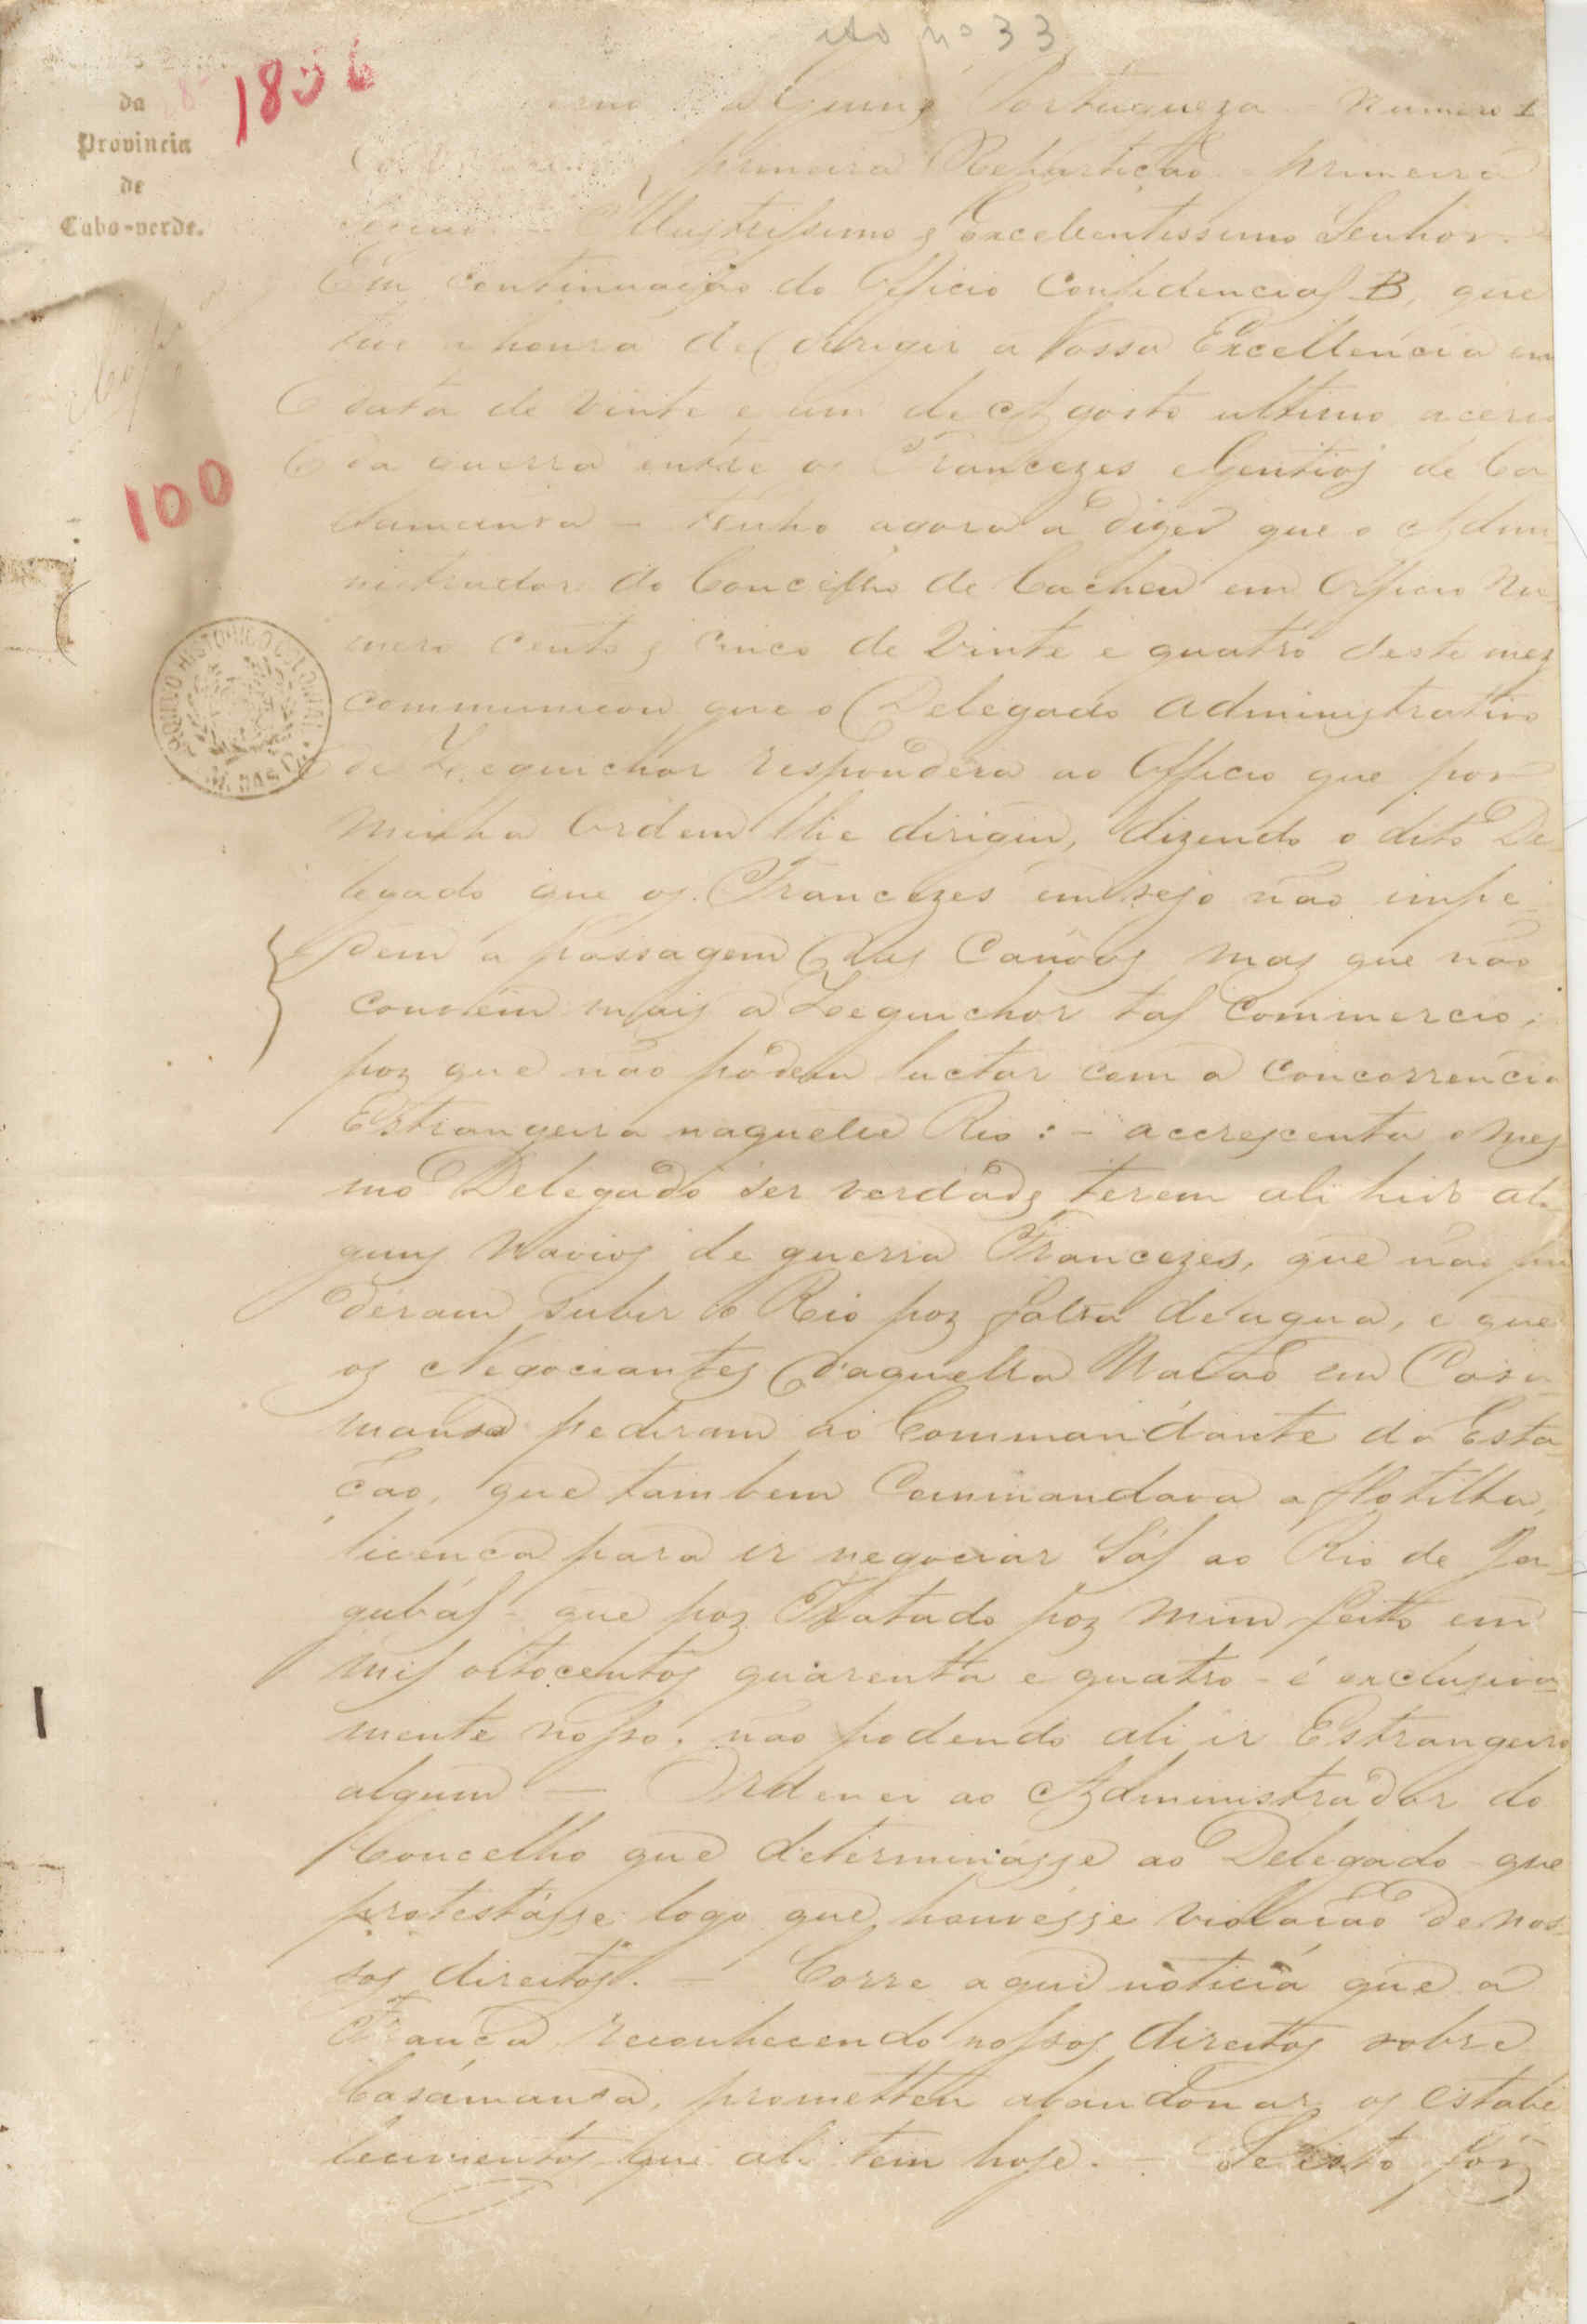 nº 33
1856
da
Provincia
de
Cabo-verde.
Guiné Portugueza Numero 1
primeira Repartição primeira
Illustrissimo e Excellentissimo Senhor.
Em continuação do Officio Confidencial B, que
tive a honra de dirigir a Vossa Excellencia em
data de vinte e um de Agosto ultimo acerca
da guerra entre os Francezes e Gentios de Ca
samansa – tenho agora a dizer que o Admi
nistrador do Concelho de Cacheu em Officio Nu
mero cento e cinco de vinte e quatro deste mez
communicou que o Delegado Administrativo
de Zeguichor respondera ao Officio que por
minha Ordem lhe dirigiu, dizendo o dito De
legado que os Francezes em Sejo não impe
dem a passagem das Canôas mas que não
convém mais a Zeguichor tal Commercio,
poz que não pódem luctar com a concorrencia
Estrangeira naquelle Rio: – accrescenta o mes
mo Delegado ser verdade terem ali hido al
guns Navios de guerra Francezes, que não pu
déram subir o Rio poz falta de agua, e que
os Negociantes d'aquella Nação em Casa
mansa pediram ao Commandante da Esta
ção, que tambem Commandava a flotilha,
licença para ir negociar Sál ao Rio de Ja
gubál – que poz Tratado poz mim feito em
mil oitocentos quarenta e quatro – é exclusiva
mente nosso, não podendo ali ir Estrangeiro
algum – Ordenei ao Administrador do
Concelho que determinásse ao Delegado que
protestásse logo que houvésse violação de nos
sos direitos. – Corre aqui noticia que a
França reconhecendo nossos direitos sobre
Casamansa, prometteu abandonar os estabe
lecimentos que ali tem hoje. – Se isto fôr
100
ARQUIVO HISTORICO COLONIAL